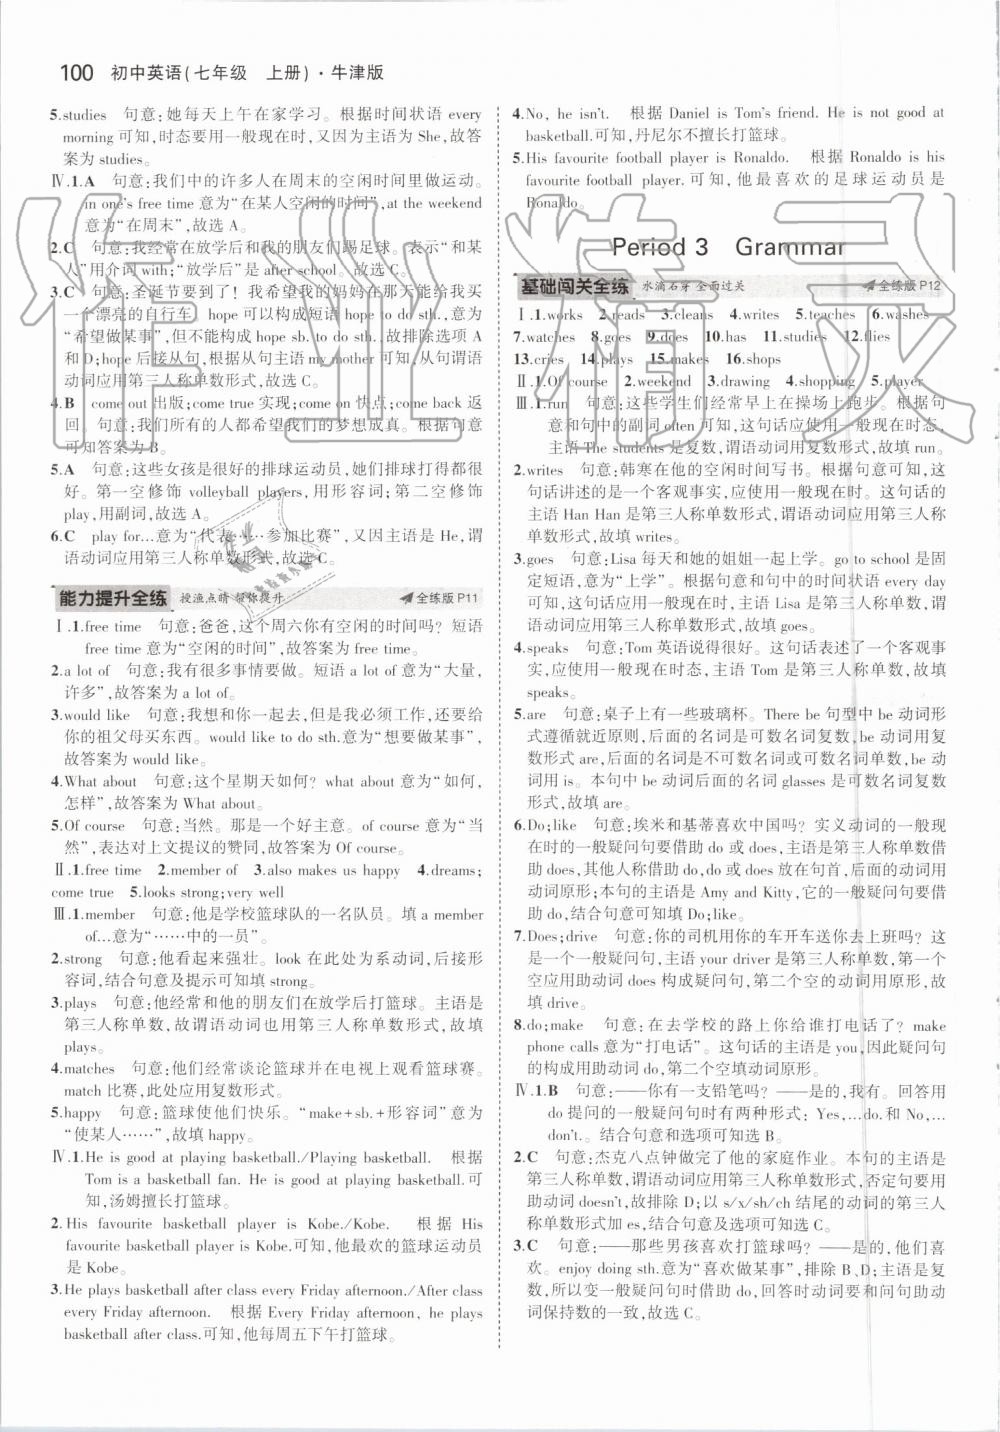 100 初中英语(七年级 上册)·牛津版
5.studies 句意:她每天上午在家学习。根据时间状语 every
morning 可知,时态要用一般现在时,又因为主语为 She,故答
案为 studies。
Ⅳ.1.A 句意:我们中的许多人在周末的空闲时间里做运动。
in one's free time 意为“在某人空闲的时间”,at the weekend
意为“在周末”,故选 A。
2.C 句意:我经常在放学后和我的朋友们踢足球。表示“和某
人”用介词 with;“放学后”是 after school。故选 C。
3.C 句意:圣诞节要到了!我希望我的妈妈在那天送我
一个漂亮的自行车。hope 可以构成短语 hope to do sth.,意为
“希望做某事”,但不能构成 hope sb. to do sth.,故排除选项 A
和 D;hope 后接从句,根据从句主语 my mother 可知,从句谓语
动词应用第三人称单数形式,故选 C。
4.B come out 出版;come true 实现;come on 快点;come back 返
回。句意:我们所有的人都希望我们的梦想成真。根据句意
可知答案为 B。
5.A 句意:这些女孩是很好的排球运动员,她们排球打得都很
好。第一空修饰 volleyball players,用形容词;第二空修饰
play,用副词,故选 A。
6.C play for…意为“代表……参加比赛”,又因主语是 He,谓
语动词应用第三人称单数形式,故选 C。
能力提升全练 授渔点睛 帮你提升 全练版 P11
Ⅰ.1.free time 句意:爸爸,这个周六你有空闲的时间吗?短语
free time 意为“空闲的时间”,故答案为 free time。
2.a lot of 句意:我有很多事情要做。短语 a lot of 意为“大量,
许多”,故答案为 a lot of。
3.would like 句意:我想和你一起去,但是我必须工作,还要给
你的祖父母买东西。would like to do sth.意为“想要做某事”,
故答案为 would like。
4.What about 句意:这个星期天如何?what about 意为“如何,
怎样”,故答案为 What about。
5.Of course 句意:当然。那是一个好主意。of course 意为“当
然”,表达对上文提议的赞同,故答案为 Of course。
Ⅱ.1.free time 2.member of 3.also makes us happy 4.dreams;
come true 5.looks strong;very well
Ⅲ.1.member 句意:他是学校篮球队的一名队员。填 a member
of…意为“……中的一员”。
2.strong 句意:他看起来强壮。look 在此为系动词,后接形
容词,结合句意及提示可知填 strong。
3.plays 句意:他经常和他的朋友们在放学后打篮球。主语是
第三人称单数,故谓语动词也用第三人称单数形式,故填
plays。
4.matches 句意:他们经常谈论篮球并在电视上观看篮球赛。
match 比赛,此处应用复数形式。
5.happy 句意:篮球使他们快乐。“make+sb.+形容词”意为
“使某人……”,故填 happy。
Ⅳ.1.He is good at playing basketball./Playing basketball. 根据
Tom is a basketball fan. He is good at playing basketball.可
知,汤姆擅长打篮球。
2.His favourite basketball player is Kobe./Kobe. 根据 His
favourite basketball player is Kobe.可知,他最欢的篮球运动员
是 Kobe。
3.He plays basketball after class every Friday afternoon./After class
every Friday afternoon. 根据 Every Friday afternoon, he plays
basketball after class.可知,他每周五下午打篮球。
4.No, he isn't. 根据 Daniel is Tom's friend. He is not good at
basketball.可知,丹尼尔不擅长打篮球。
5.His favourite football player is Ronaldo. 根据 Ronaldo is his
favourite football player.可知,他最喜欢的足球运动员是
Ronaldo。
Period 3 Grammar
基础闯关全练 水滴石穿 全面过关 全练版 P12
Ⅰ.1.works 2.reads 3.cleans 4.writes 5.teaches 6.washes
7.watches 8.goes 9.does 10.has 11.studies 12.flies
13.cries 14.plays 15.makes 16.shops
Ⅱ.1.Of course 2.weekend 3.drawing 4.shopping 5.player
Ⅲ.1.run 句意:这些学生们经常早上在操场上跑步。根据句
意和句中的副词 often 可知,这句话应使用一般现在时态,
主语 The students 是复数,谓语动词用复数形式,故填 run。
2.writes 句意:韩寒在他的空闲时间写书。根据句意可知,这
句话讲述的是一个客观事实,应使用一般现在时。这句话的
主语 Han Han 是第三人称单数形式,谓语动词用第三人称单
数形式,故填 writes。
3.goes 句意:Lisa 每天和她的姐姐一起上学。go to school 是固
定短语,意为“上学”。根据句意可知,这句话讲述的是一个
客观事实,应使用一般现在时,主语 Lisa 是第三人称单数形
式,谓语动词用第三人称单数形式,故填 goes。
4.speaks 句意:Tom 英语说得很好。这句话表述了一个客观事
实,应使用一般现在时态,主语 Tom 是第三人称单数,故填
speaks。
5.are 句意:桌子上有一些玻璃杯。There be 句型中 be 动词形
式遵循就近原则,后面的名词是可数名词复数形式,be 动词用复
数形式 are,后面的名词是不可数名词或可数名词单数,be 动
词用 is。本句中 be 动词后面的名词 glasses 是可数名词复数
形式,故填 are。
6.Do;like 句意:埃米和基蒂喜欢中国吗?实义动词的一般现
在时的一般疑问句要借助 do 或 does,主语是第三人称单数借助
does,其他人称借助 do,do 或 does 放在句首,后面的动词用
动词原形;本句的主语是 Amy and Kitty,它的一般疑问句要借
助 do,结合句意可知填 Do;like。
7.Does;drive 句意:你的司机用你的车开车送你去上班吗?这
是一个一般疑问句,主语 your driver 是第三人称单数,第一个
空应用助动词 does 构成疑问句,第二个空的动词用原形,故
填 drive。
8.do;make 句意:在去学校的路上你给谁打电话了?make
phone calls 意为“打电话”。这句话的主语是 you,因此疑问句
的构成用助动词 do,第二个空填动词原形。
Ⅳ.1.B 句意:——你有一支铅笔吗?——是的,我有。回答用
do 提问的一般疑问句时有两种形式:Yes,…do.和 No,…
don't。结合句意和选项可知选 B。
2.C 句意:杰克八点钟做完了他的家庭作业。本句的主语是
第三人称单数,谓语动词应用第三人称单数形式,否定句要用
助动词 doesn't,故排除 D;以 s/x/sh/ch 结尾的动词的第三人
称单数形式应加 es,结合句意及选项可知选 C。
3.C 句意:——那些男孩喜欢打篮球吗?——是的,他们喜
欢。enjoy doing sth.意为“喜欢做某事”,排除 B、D;主语是复
数,所以变一般疑问句时借助 do,回答时动词要和问句助动
词保持数的一致,故选 C。
作业精灵